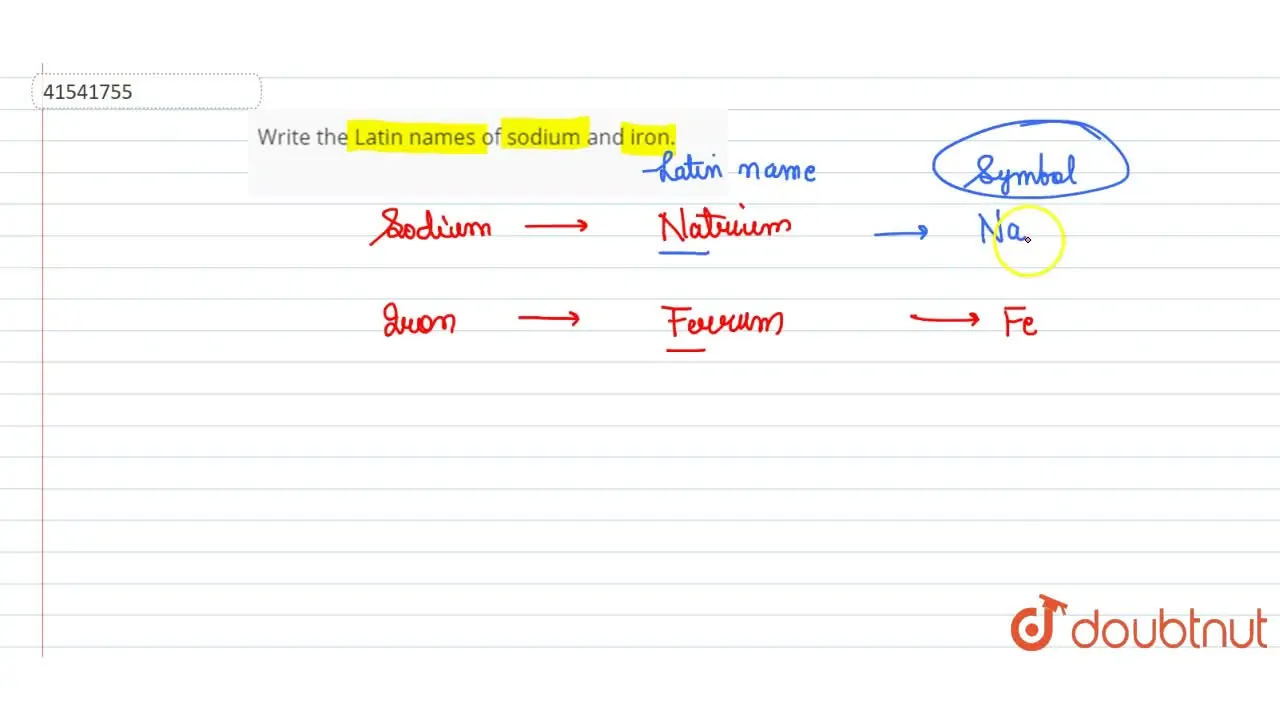 41541755
Write the Latin names of sodium and iron.
Latin name Symbol
Sodium → Natrium → Na
Iron → Ferrum → Fe
doubtnut